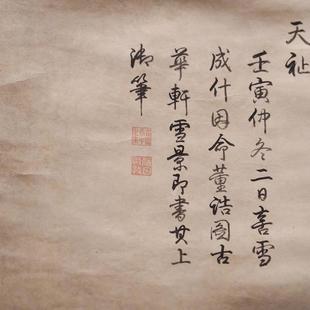 天祉
壬寅仲冬二日喜雪
成什因命董誥圖古
華軒雪景即書其上
御筆